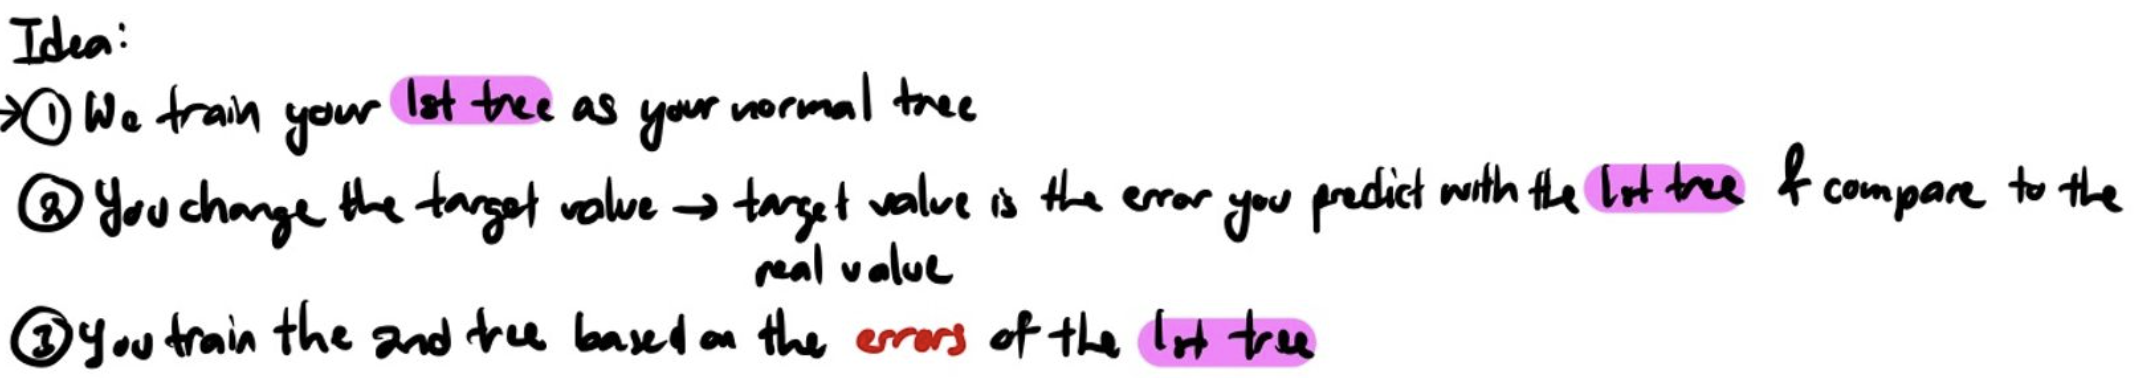 Idea:
→① We train your 1st tree as your normal tree
② You change the target value → target value is the error you predict with the 1st tree & compare to the
real value
③ You train the 2nd tree based on the errors of the 1st tree